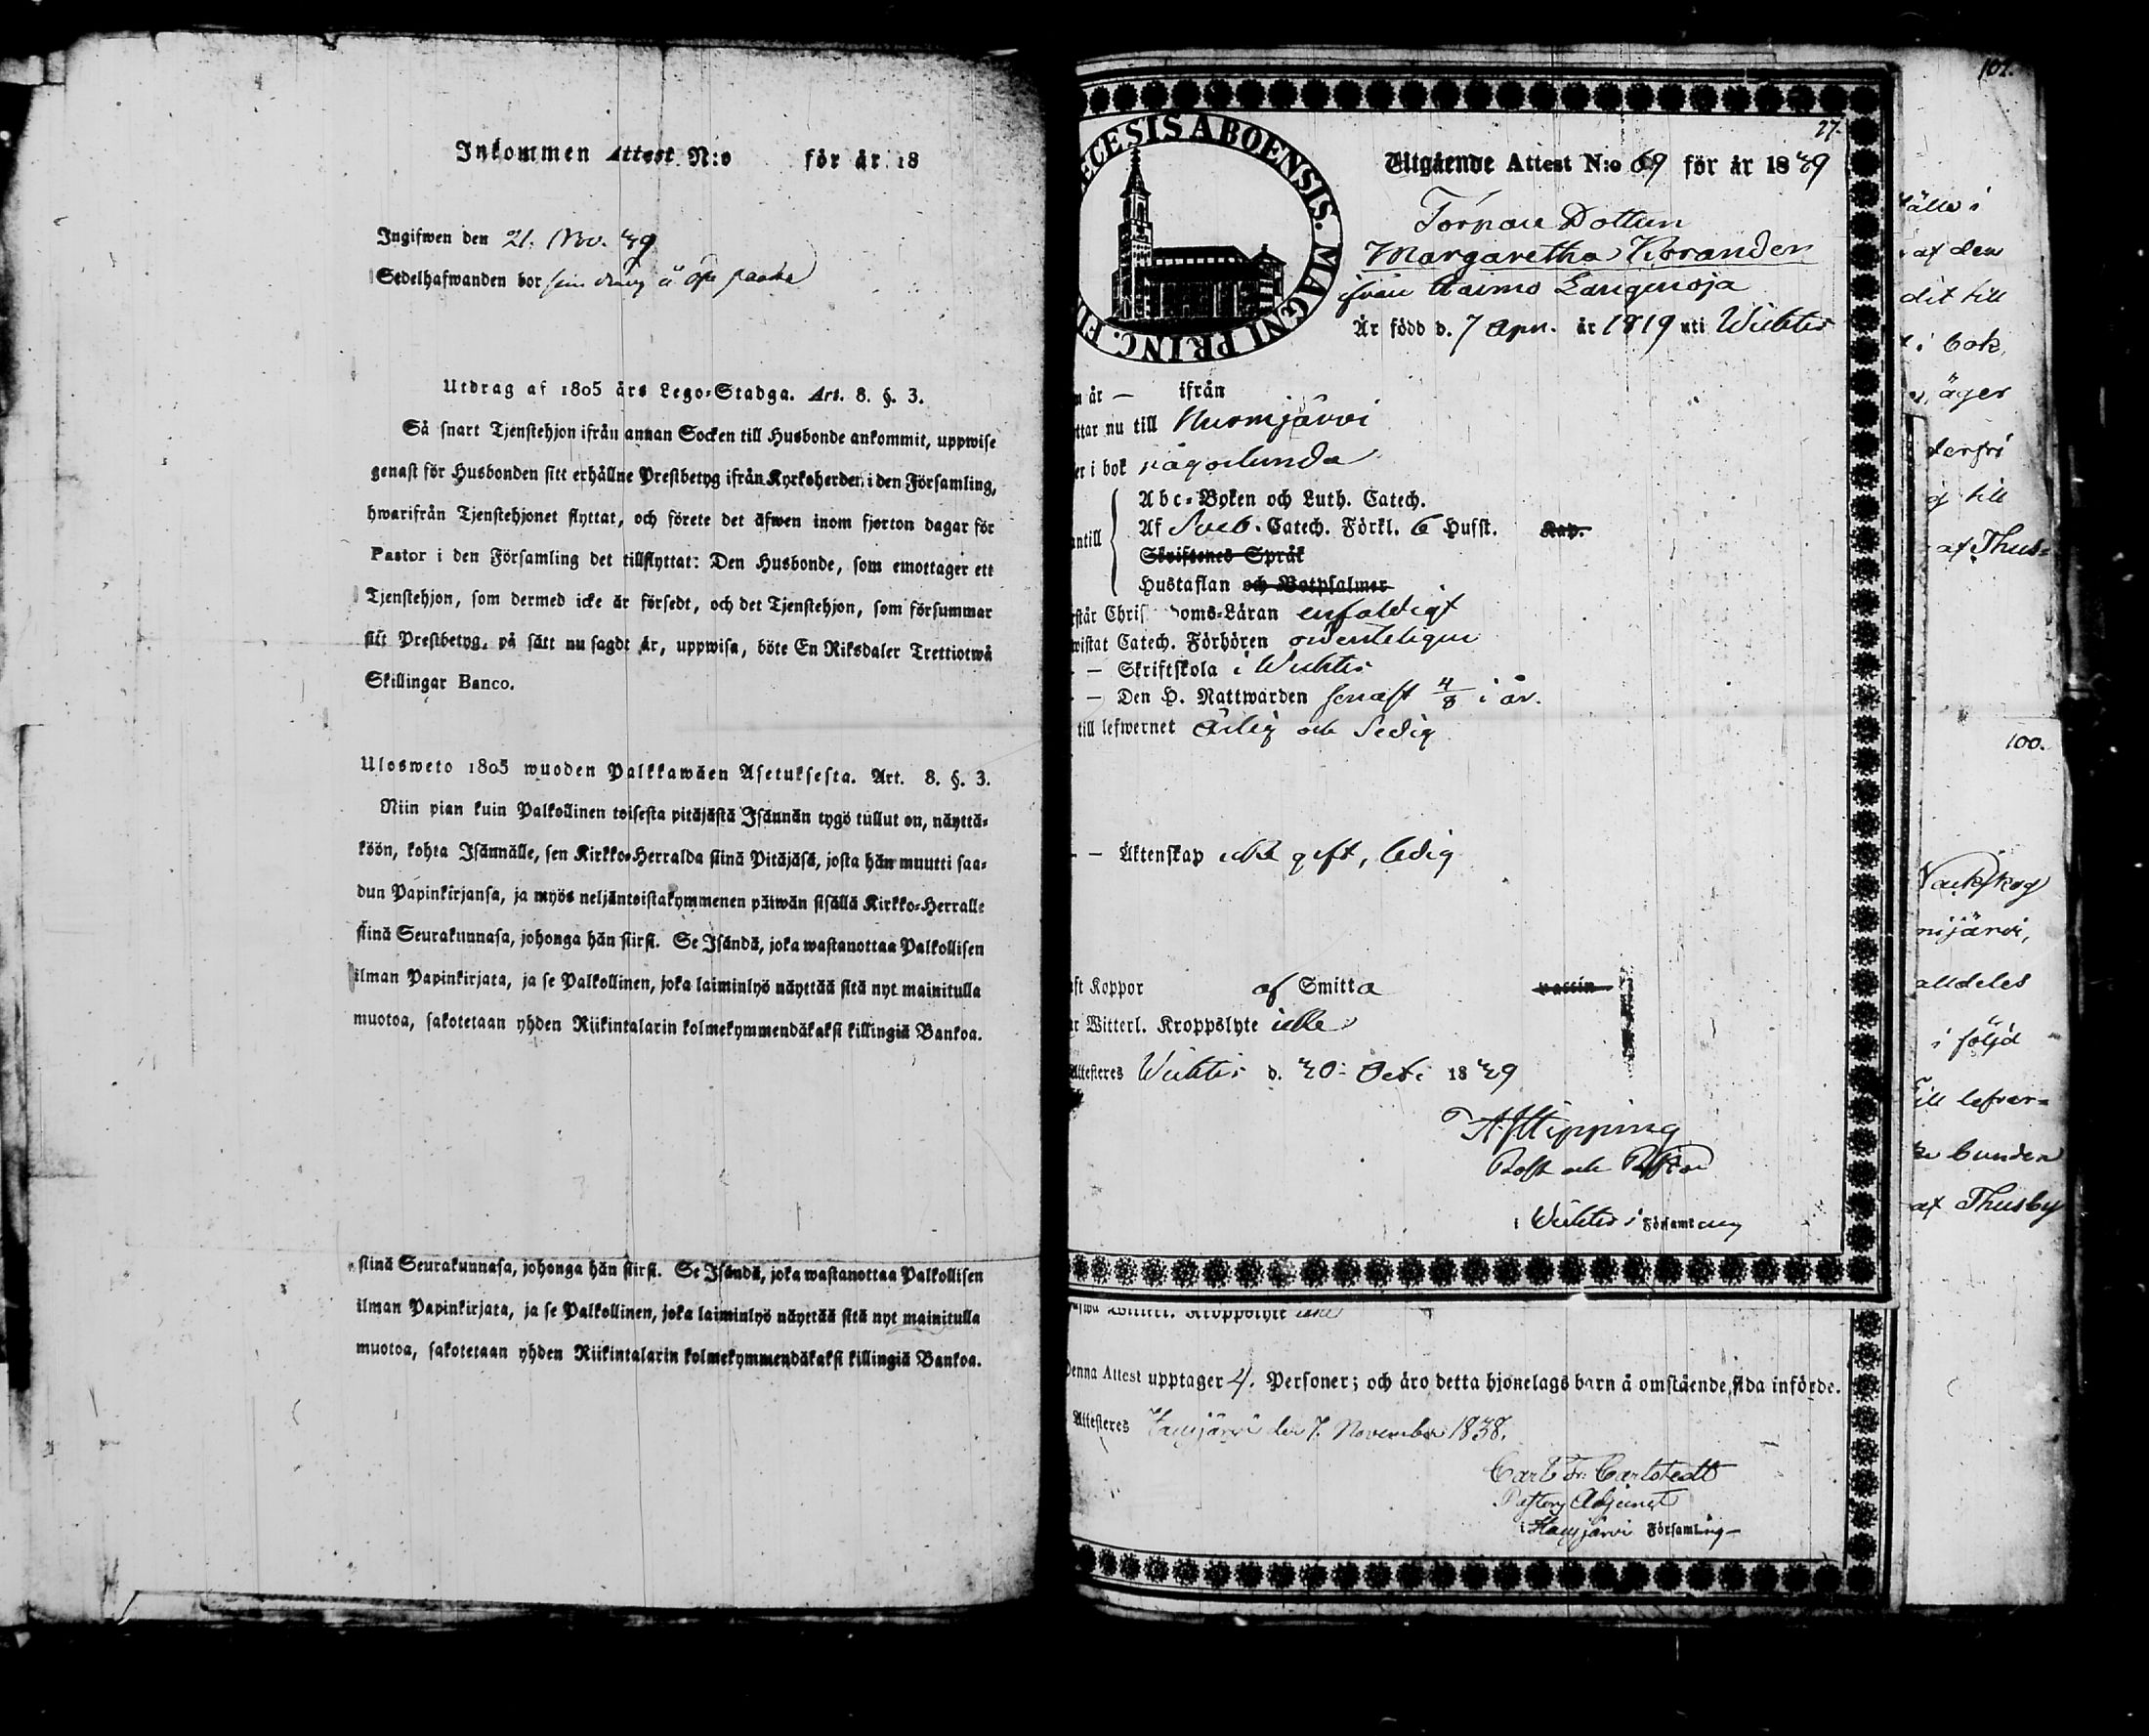 Inkommen Attest N:o för år 18
Ingifwen den 21. Nov. 39
Sedelhafwanden bor
Utdrag af 1805 års Lego-Stadga. Art. 8. §. 3.
Så snart Tjenstehjon ifrån annan Socken till Husbonde ankommit, uppwise
genast för Husbonden sitt erhållne Prestbetyg ifrån Kyrkoherden i den Församling,
hwarifrån Tjenstehjonet flyttat, och förete det äfwen inom fjorton dagar för
Pastor i den Församling det tillflyttat: Den Husbonde, som emottager ett
Tjenstehjon, som dermed icke är försedt, och det Tjenstehjon, som försummar
sitt Prestbetyg, på sätt nu sagdt är, uppwisa, böte En Riksdaler Trettiotwå
Skillingar Banco.
Ulosweto 1805 wuoden Palkkawäen Asetuksesta. Art. 8. §. 3.
Niin pian kuin Palkollinen toisesta pitäjästä Isännän tygö tullut on, näyttä-
köön, kohta Isännälle, sen Kirkko-Herralda siinä Pitäjäsä, josta hän muutti saa-
dun Papinkirjansa, ja myös neljäntoistakymmenen päiwän sisällä Kirkko-Herralle
siinä Seurakunnasa, johonga hän siirsi. Se Isändä, joka wastanottaa Palkollisen
ilman Papinkirjata, ja se Palkollinen, joka laiminlyö näyttää sitä nyt mainitulla
muotoa, sakotetaan yhden Riikintalarin kolmekymmendäkaksi killingiä Bankoa.
siinä Seurakunnasa, johonga hän siirsi. Se Isändä, joka wastanottaa Palkollisen
ilman Papinkirjata, ja se Palkollinen, joka laiminlyö näyttää sitä nyt mainitulla
muotoa, sakotetaan yhden Riikintalarin kolmekymmendäkaksi killingiä Bankoa.
27.
ECESIS ABOENSIS. MAGNI PRINC. FI
Utgående Attest N:o 69 för år 1839
Torpare Dottern
Margaretha Korander
ifrån Haimo Langinoja
Är född d. 7 Apr. år 1819 uti Wichtis
år — ifrån
ttar nu till Nurmjärvi
er i bok någorlunda
Abc-Boken och Luth. Catech.
antill Af Sveb. Catech. Förkl. 6 Hufst. Kap.
Skriftenes Språk
Hustaflan och Botpsalmer
rstår Chris doms-Läran enfaldigt
wistat Catech. Förhören ordenteligen
— Skriftskola i Wichtis
— Den H. Nattwarden senast 4/8 i år.
till lefwernet Ärlig och Sedig
— Äktenskap icke gift, ledig
ft Koppor af Smitta vaccin
r Witterl. Kroppslyte icke
Attesteres Wichtis d. 30. Oct. 1839
Prost och Pastor
i Wichtis Församling
Kroppslyte icke
Denna Attest upptager 4. Personer; och äro detta hjonelags barn å omstående sida införde.
Attesteres den 7. November 1838.
Carl Fr. Carlstedt
Pastors Adjunct
i Församling
101.
hälle i
af den
dit till
i bok,
äger
derfri
till
af Thus-
100.
mijärvi,
alldeles
i följd
ill lefver-
bunden
af Thusby